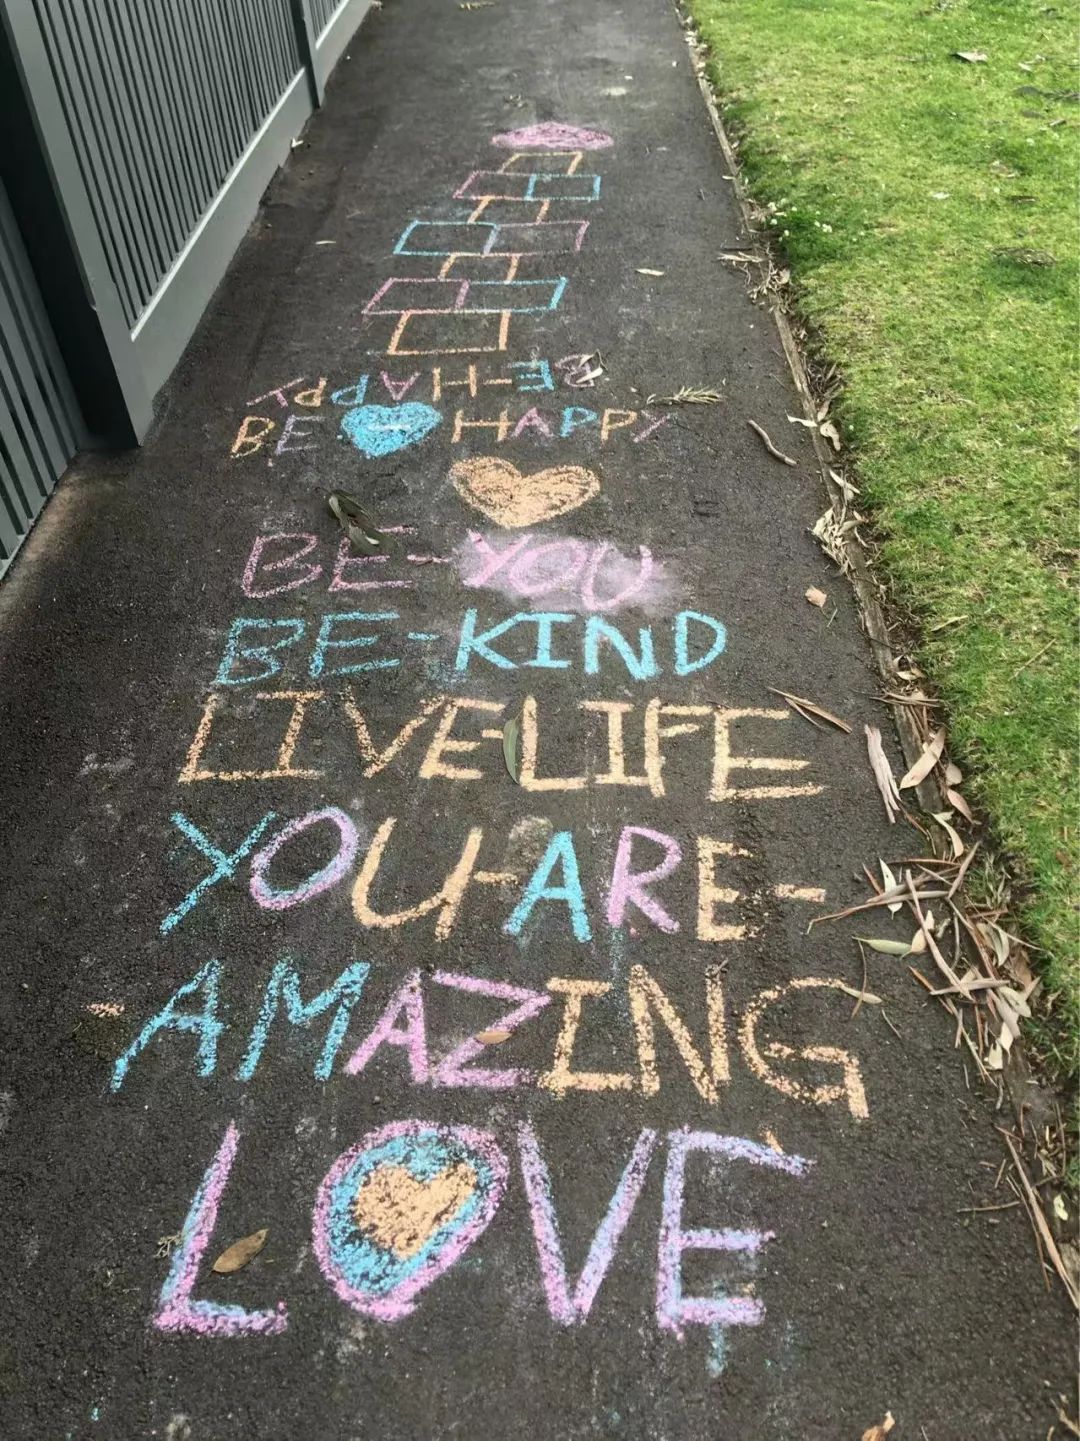 BE-HAPPY
BE-HAPPY
BE-YOU
BE-KIND
LIVE-LIFE
YOU-ARE-
-AMAZING
LOVE